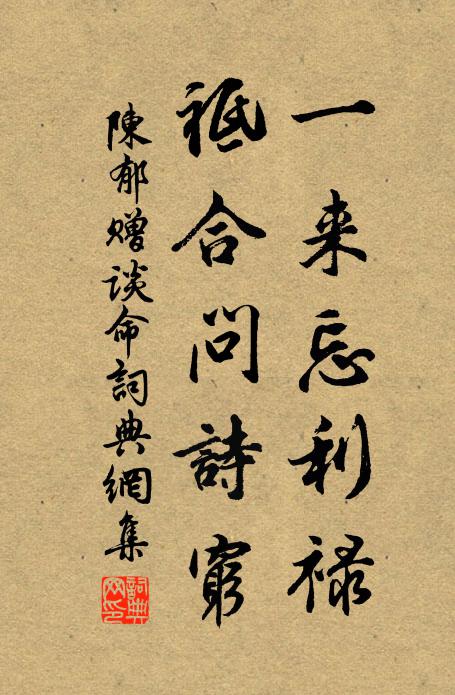 一来忘利禄
祗合問詩窮
陳郁贈談命詞典網集
詞典網印